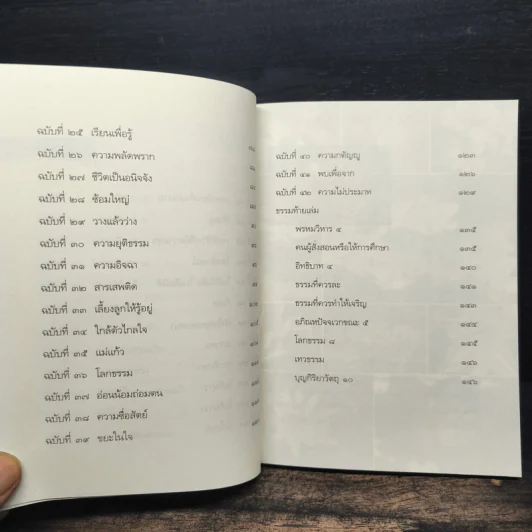 ฉบับที่ ๒๕ เรียนเพื่อรู้
ฉบับที่ ๒๖ ความพลัดพราก
ฉบับที่ ๒๗ ชีวิตเป็นอนิจจัง
ฉบับที่ ๒๘ ซ้อมใหญ่
ฉบับที่ ๒๙ วางแล้วว่าง
ฉบับที่ ๓๐ ความยุติธรรม
ฉบับที่ ๓๑ ความอิจฉา
ฉบับที่ ๓๒ สารเสพติด
ฉบับที่ ๓๓ เลี้ยงลูกให้รู้อยู่
ฉบับที่ ๓๔ ใกล้ตัวไกลใจ
ฉบับที่ ๓๕ แม่แก้ว
ฉบับที่ ๓๖ โลกธรรม
ฉบับที่ ๓๗ อ่อนน้อมถ่อมตน
ฉบับที่ ๓๘ ความซื่อสัตย์
ฉบับที่ ๓๙ ขยะในใจ
ฉบับที่ ๔๐ ความกตัญญู ๑๒๓
ฉบับที่ ๔๑ พบเพื่อจาก ๑๒๖
ฉบับที่ ๔๒ ความไม่ประมาท ๑๒๙
ธรรมท้ายเล่ม
พรหมวิหาร ๔ ๑๓๕
คนผู้สั่งสอนหรือให้การศึกษา ๑๓๕
อิทธิบาท ๔ ๑๔๐
ธรรมที่ควรละ ๑๔๑
ธรรมที่ควรทำให้เจริญ ๑๔๓
อภิณหปัจจเวกขณะ ๕ ๑๔๔
โลกธรรม ๘ ๑๔๕
เทวธรรม ๑๔๖
บุญกิริยาวัตถุ ๑๐ ๑๔๖